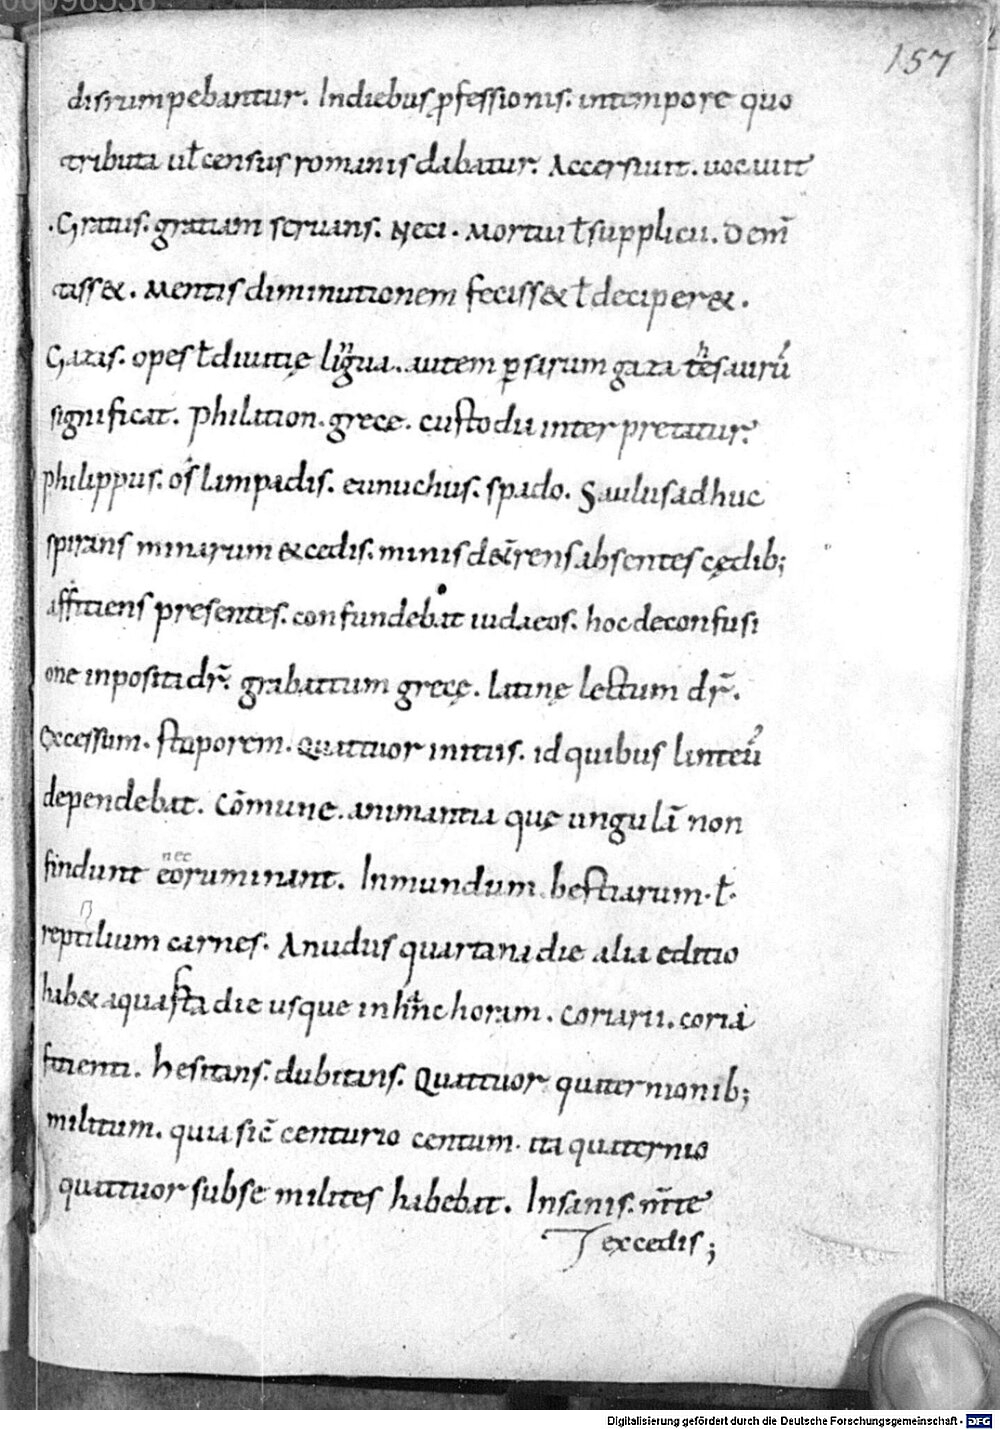 00098538
157
disrumpebantur. Indiebus pfessionis. intempore quo
tributa uƚ census romanis dabatur. Accersiuit. uocauit
.Gratus. gratiam seruans. Neci. Mortui ƚ supplicii. Dem̄
tass&. Mentis diminutionem feciss& ƚ deciper&.
Gazas. opes ƚ diuitię lingua. autem ꝑsarum gaza thesaurū
significat. Philation. grece. custodii interpretatur.
philippus. os lampadis. eunuchus. spado. Saulus adhuc
spirans minarum & cedis. minis det̄rens absentes cędib;
afficiens presentes. confundebat iudaeos. hoc deconfusi
one inposita dr̄. grabattum grecę. latinę lectum dr̄.
Excessum. stuporem. Quattuor initiis. id quibus linteū
dependebat. Cōmune. animantia quę ungulā non
findunt nec eoruminant. Inmundum bestiarum. ƚ.
reptilium carnes. A nudus quartana die alia editio
hab& aquarta die usque inhanc horam. Coriarii. coria
facienti. hesitans. dubitans. Quattuor quaternionib;
militum. quia sic̄ centurio centum. ita quaternio
quattuor subse milites habebat. Insanis. m̄te
excedis;
Digitalisierung gefördert durch die Deutsche Forschungsgemeinschaft - DFG